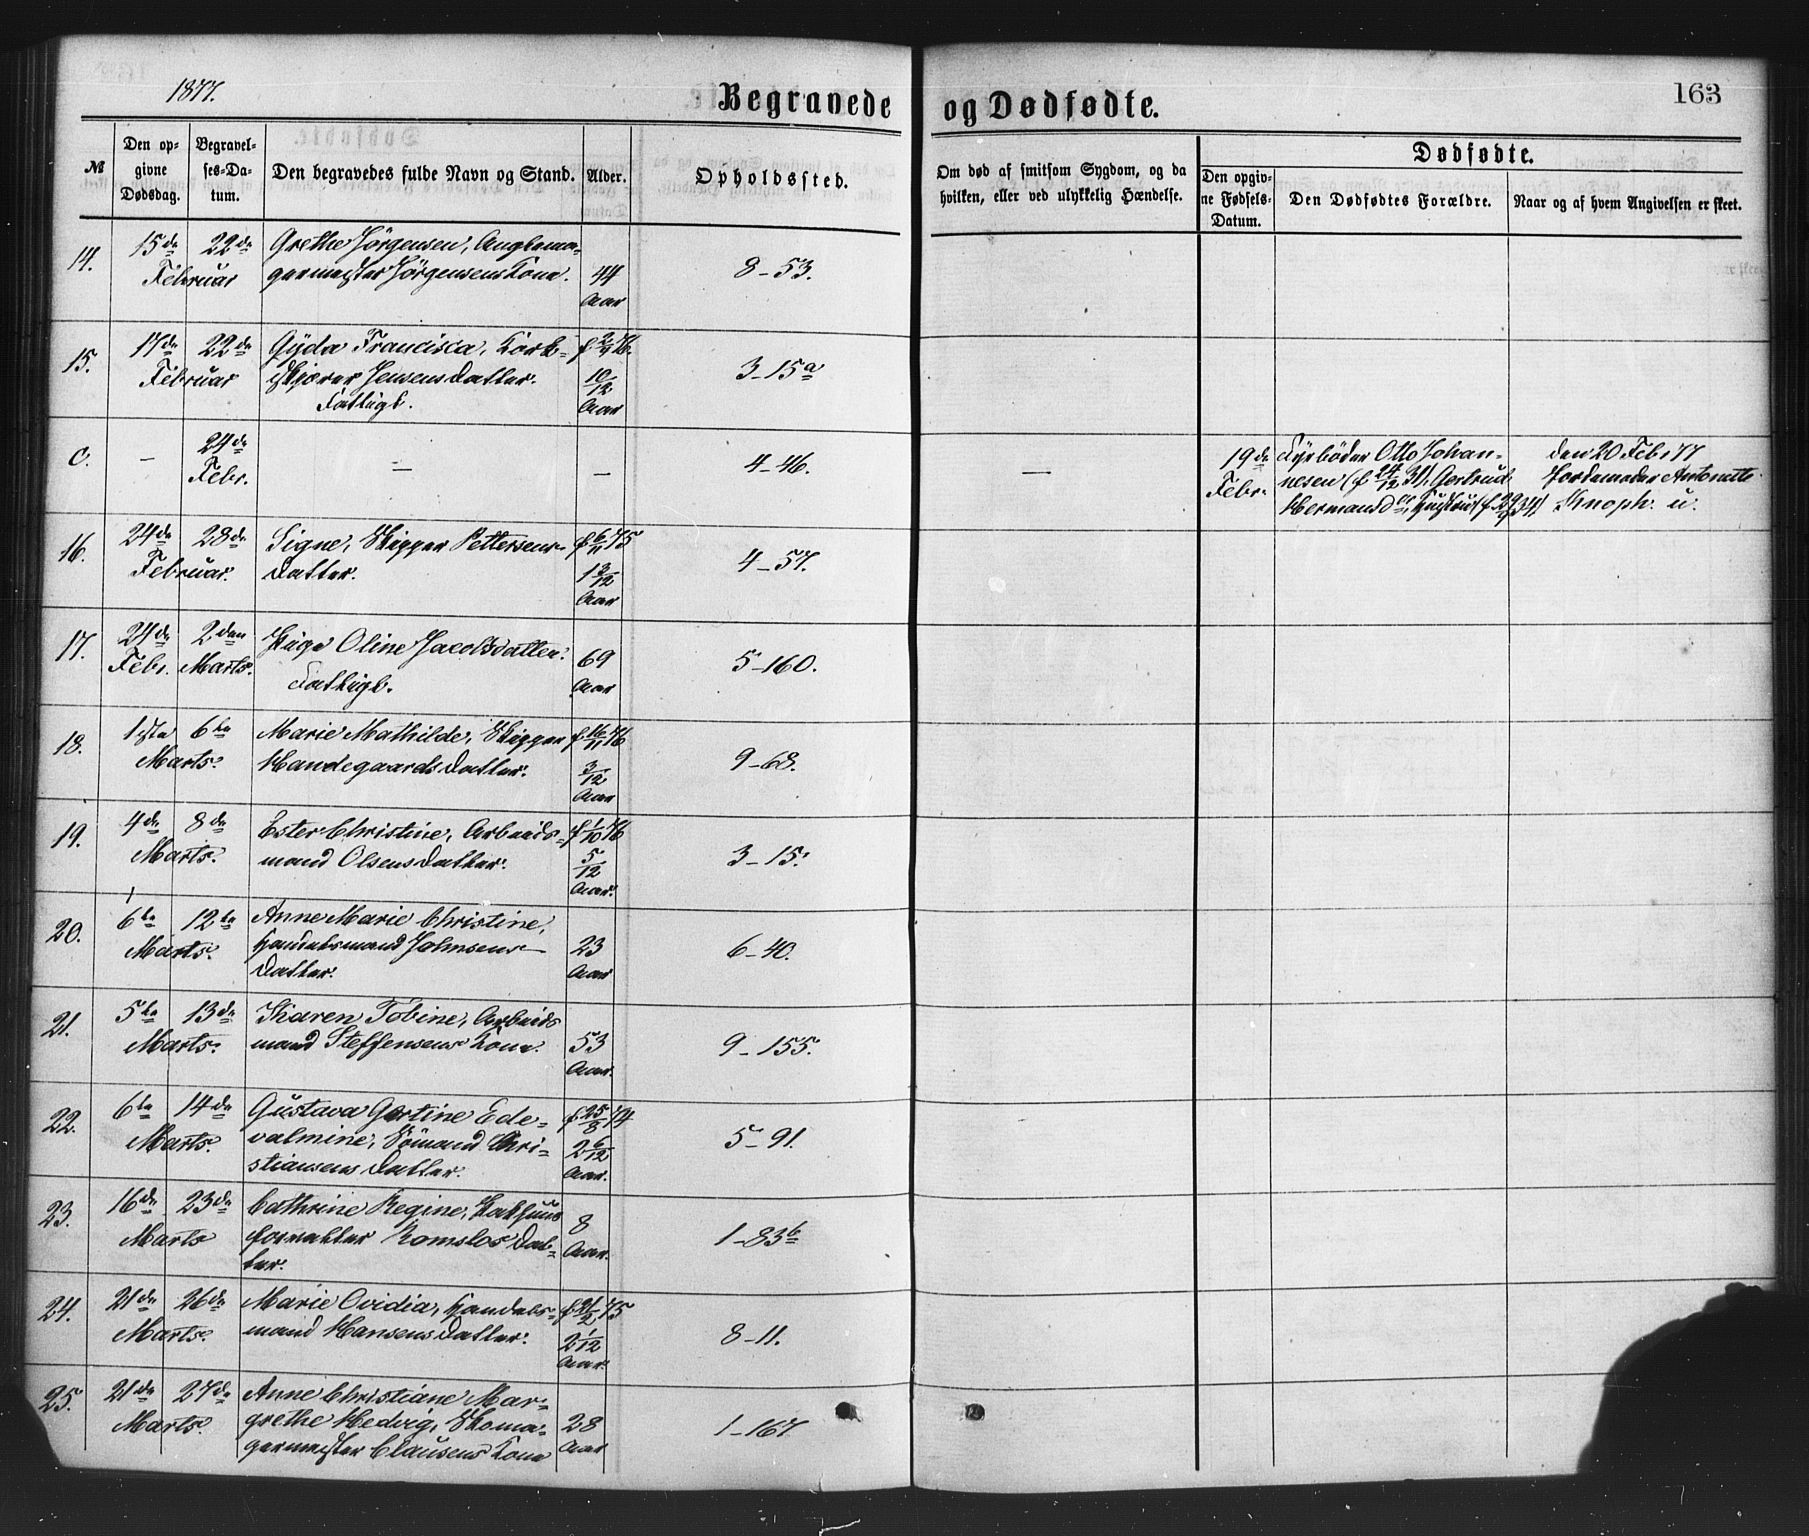 1877.
Begravede og Dødfødte.
163
№
Den opgivne Dødsdag.
Begravelses-Datum.
Den begravedes fulde Navn og Stand.
Alder.
Opholdssted.
Om død af smitsom Sygdom, og da hvilken, eller ved ulykkelig Hændelse.
Dødfødte.
Den opgivne Fødsels-Datum.
Den Dødfødtes Forældre.
Naar og af hvem Angivelsen er skeet.
14. 15de 22de Grethe Jörgensen,
Februar germester Jörgensens Kone. 44 Aar 8-53.
15. 17de 22de Gyda Francisca, Kork-
Februar skjærer Jensens Datter. f. 2/4 76. 10/12 Aar 3-15a
Fattigl.
C. - 24de Febr. - - 4-46. - 19de Febr. Fyrböder Otto Johan- den 20 Feb. 77
nesen (f 24/12 31), Gertrud Jordemoder Antonette
Hermansd Hustru Knoph. u.
16. 24de 28de Signe, Skipper Pettersens f 6/11 75
Februar. Datter. 1 3/12 Aar 4-57.
17. 24de 2den Pige Oline Jacobsdatter. 69 Aar 5-160.
Febr. Marts. Fattigl.
18. 1ste 6te Marie Mathilde, Skipper f. 16/11 76
Marts. Handegaards Datter. 3/12 Aar 9-68.
19. 4de 8de Ester Christine, Arbeids- f 1/10 76
Marts. mand Olsens Datter. 5/12 Aar. 3-15.
20. 6te 12te Anne Marie Christine,
Marts. Handelsmand Johnsens 23 Aar 6-40.
Datter.
21. 5te 13de Karen Tobine, Arbeids
Marts. mand Steffensens Kone. 53 Aar. 9-155.
22. 6te 14de Gustava Gertine Ede- f. 25/8 74
Marts. valmine, Sömand Chri- 2 6/12 Aar. 5-91.
stiansens Datter.
23. 16de 23de Cathrine Regine,
Marts Romslos Dat- 8 Aar. 1-83b
ter.
24. 21de 26de Marie Ovidia, Handels- f. 21/2 75
Marts. mand Hansens Datter. 2 1/12 Aar. 8-11.
25. 21de 27de Anne Christiane Mar-
Marts. grethe Hedvig, Skoma- 28 Aar 1-167
germester Clausens Kone